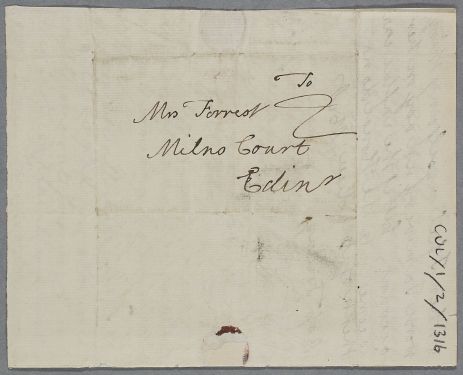 To
Mrs Forrest
Milns Court
Edinr
CUL/1/2/1316